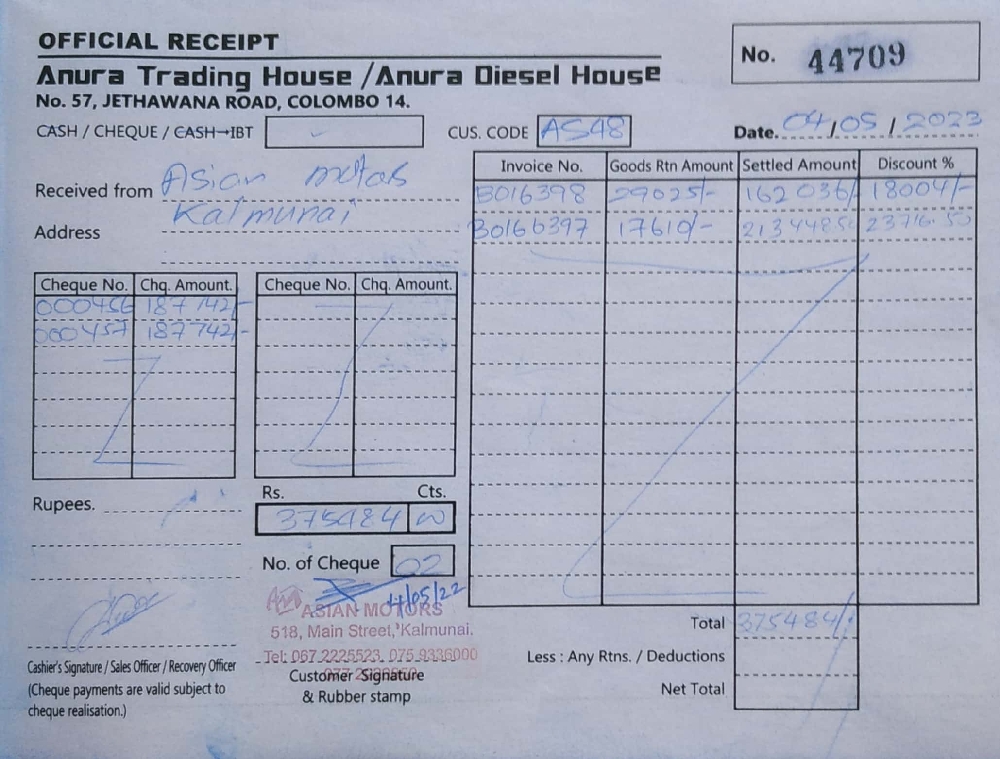 OFFICIAL RECEIPT
No. 44709
Anura Trading House / Anura Diesel House
No. 57, JETHAWANA ROAD, COLOMBO 14.
CASH / CHEQUE / CASH→IBT
CUS. CODE AS48
Date. 04/05/2023
Received from Asian motors
Address Kalmunai
Invoice No. Goods Rtn Amount Settled Amount Discount %
B016398 29025/- 162 036/- 18004/-
B0166397 17610/- 213448.50 23716.50
Cheque No. Chq. Amount. Cheque No. Chq. Amount.
000456 187 742/-
000457 187742/-
Rupees.
Rs. Cts.
375484 00
No. of Cheque 02
11/05/22
ASIAN MOTORS
518, Main Street, Kalmunai.
Tel: 067 2225523, 075 9336000
Total 375484/-
Less : Any Rtns. / Deductions
Net Total
Cashier's Signature / Sales Officer / Recovery Officer
(Cheque payments are valid subject to
cheque realisation.)
Customer Signature
& Rubber stamp